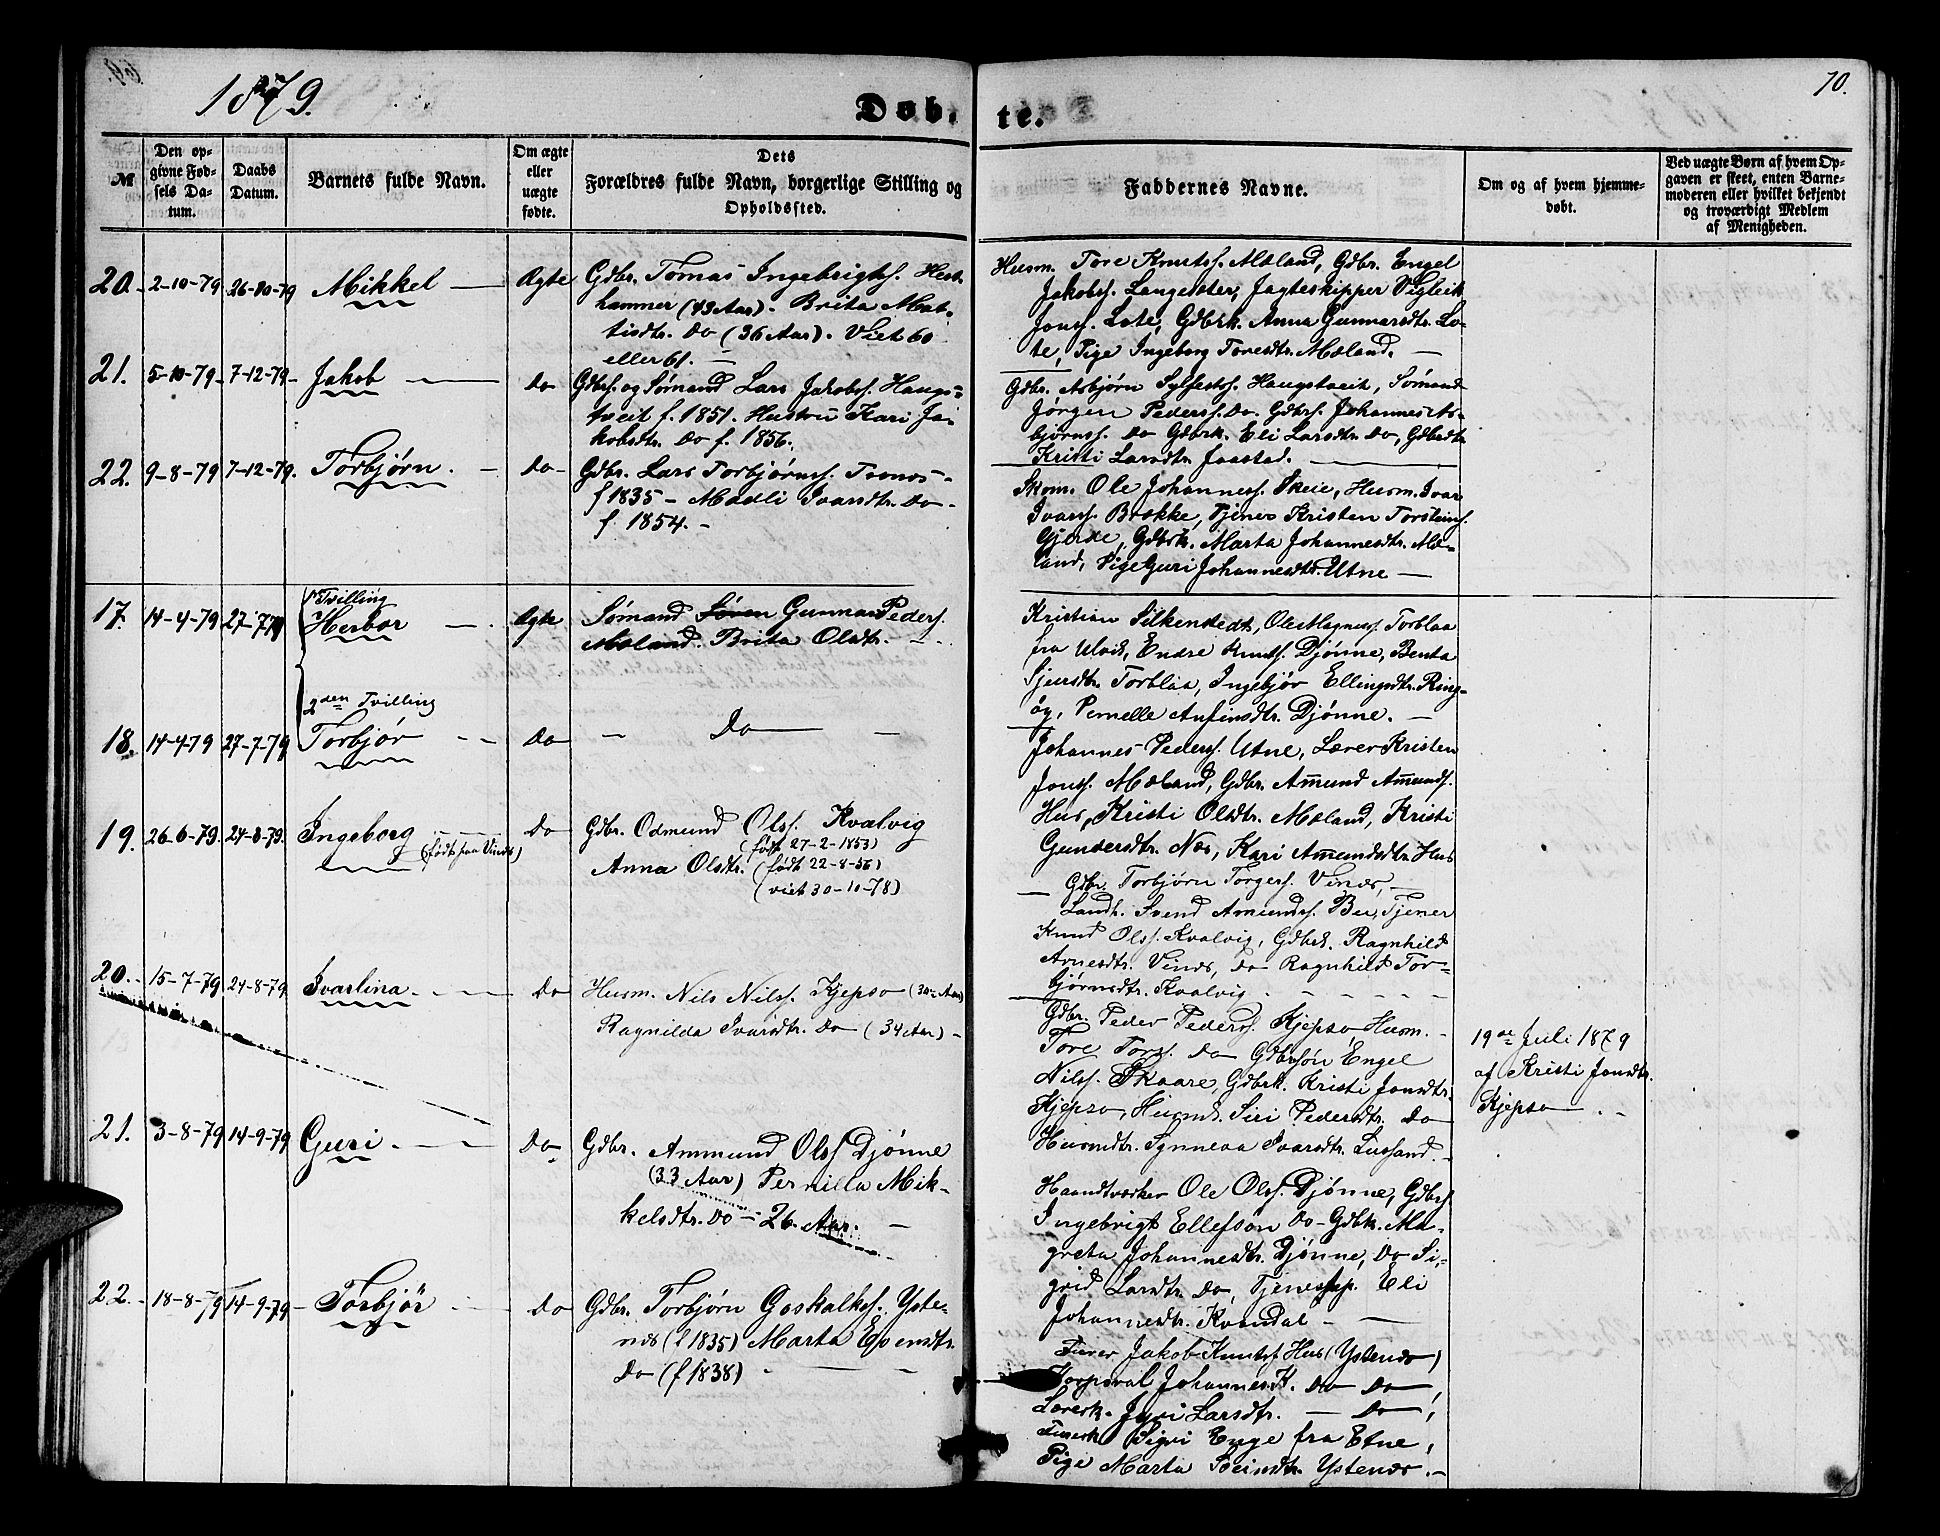 1879.
Døb-
te.
70.
№
Den op-
givne Fød-
sels Da-
tum.
Daabs
Datum.
Barnets fulde Navn.
Om ægte
eller
uægte
fødte.
Dets
Forældres fulde Navn, borgerlige Stilling og
Opholdssted.
Faddernes Navne.
Om og af hvem hjemme-
døbt.
Ved uægte Børn af hvem Op-
gaven er skeet, enten Barne-
moderen eller hvilket bekjendt
og troværdigt Medlem
af Menigheden.
20. 2-10-79 26-10-79 Mikkel — Ægte Gdbr. Tomas Ingebrigts. Hest-
hammer (43 Aar). Brita Mat-
tisdtr. Do (36 Aar). Viet 60
eller 61. —
Husm. Tore Knuts. Mæland, Gdbr. Engel
Jakobs. Langesæter, Jagteskipper Vigleik
Jons. Lote, Gdbrk. Anna Gunnarsdtr. Lo-
te, Pige Ingeborg Toresdtr. Mæland. —
21. 5-10-79 7-12-79 Jakob — Do Gdbrs. og Sømand Lars Jakobs. Haugs-
tveit f. 1851. Hustru Kari Ja-
kobsdtr. Do f. 1856.
Gdbr. Asbjørn Sylfests. Haugstveit, Sømand
Jørgen Peders. Do. Gdbrs. Johannes As-
bjørns. Do Gdbrk. Eli Larsdtr. Do, Gdbrdtr.
Kristi Larsdtr. Jaastad. —
22. 9-8-79 7-12-79. Torbjørn. — Do Gdbr. Lars Torbjørns. Tronæs -
f 1835 - Madli Ivarsdtr. Do -
f. 1854. -
Skom. Ole Johanness. Skeie, Husm. Ivar
Ivars. Brekke, Tjener Kristen Torsteins.
Gjerde, Gdbrk. Marta Johannesdtr. Mæ-
land, Pige Guri Johannesdtr. Utne —
17. 14-4-79 27-7-79 1ste Tvilling
Herbor — Ægte Sømand Søren Gunnar Peders.
Mæland. Brita Olsdtr. - -
Kristian Silkenstedt, Ole Magnes. Torblaa
fra Ulvik, Endre Knuts. Djønne, Benta
Sjursdtr. Torblaa, Ingebjør Ellingsdtr. Ring-
øy, Pernelle Anfinsdtr. Djønne. —
2den Tvilling
18. 14-4-79 27-7-79 Torbjør — Do — Do —
Johannes Peders. Utne, Lærer Kristen
Jons. Mæland, Gdbr. Amund Amunds.
Hus, Kristi Olsdtr. Mæland, Kristi
Gundersdtr. Næs, Kari Amundsdtr. Hus
19. 26-6-79 24-8-79. Ingeborg
(født paa Vinæs) Do Gdbr. Odmund Ols. Kvalvig
(født 27-2-1853)
Anna Olsdtr. (født 22-8-56)
(viet 30-10-78)
Gdbr. Torbjørn Torgers. Vinæs, —
Landh. Svend Amunds. Bu, Tjener
Knud Ols. Kvalvig, Gdbrk. Ragnhild
Arnesdtr. Vinæs, Do Ragnhild Tor-
bjørnsdtr. Kvalvig. - - - -
20. 15-7-79 24-8-79 Ivarlina — Do Husm. Nils Nils. Kjepso (30 Aar)
Ragnilda Ivarsdtr. Do (34 Aar) -
Gdbr. Peder Peders. Kjepso Husm. -
Tore Tors. Do Gdbrsøn Engel
Nils. Skaare, Gdbrk. Kristi Jonsdtr.
Kjepso, Husmk. Siri Pedersdtr. Do
Husmdtr. Synneva Ivarsdtr. Lussand. -
19de Juli 1879
af Kristi Jonsdtr.
Kjepso — . -
21. 3-8-79 14-9-79 Guri — Do Gdbr. Ammund Ols Djønne
(33 Aar) Pernilla Mik-
kelsdtr. Do - 26 Aar. —
Haandtværker Ole Ols. Djønne, Gdbrs
Ingebrigt Ellefsøn Do - Gdbk. Ma-
greta Johannesdtr. Djønne, Do Si-
grid Larsdtr. Do, Tjenesp. Eli
Johannesdtr. Kvandal - —
22. 18-8-79 14-9-79 Torbjør — Do Gdbr. Torbjørn Goskalks. Yste-
næs (f 1835) Marta Evensdtr.
Do (f 1838) -
Furer Jakob Knuts. Hus (Ystenæs)
Korporal Johannes K. Do Do,
Lærerk. Jyri Larsdtr. — Do,
Furerk Sigri Enge fra Etne,
Pige Marta Sveinsdtr. Ystenæs. -